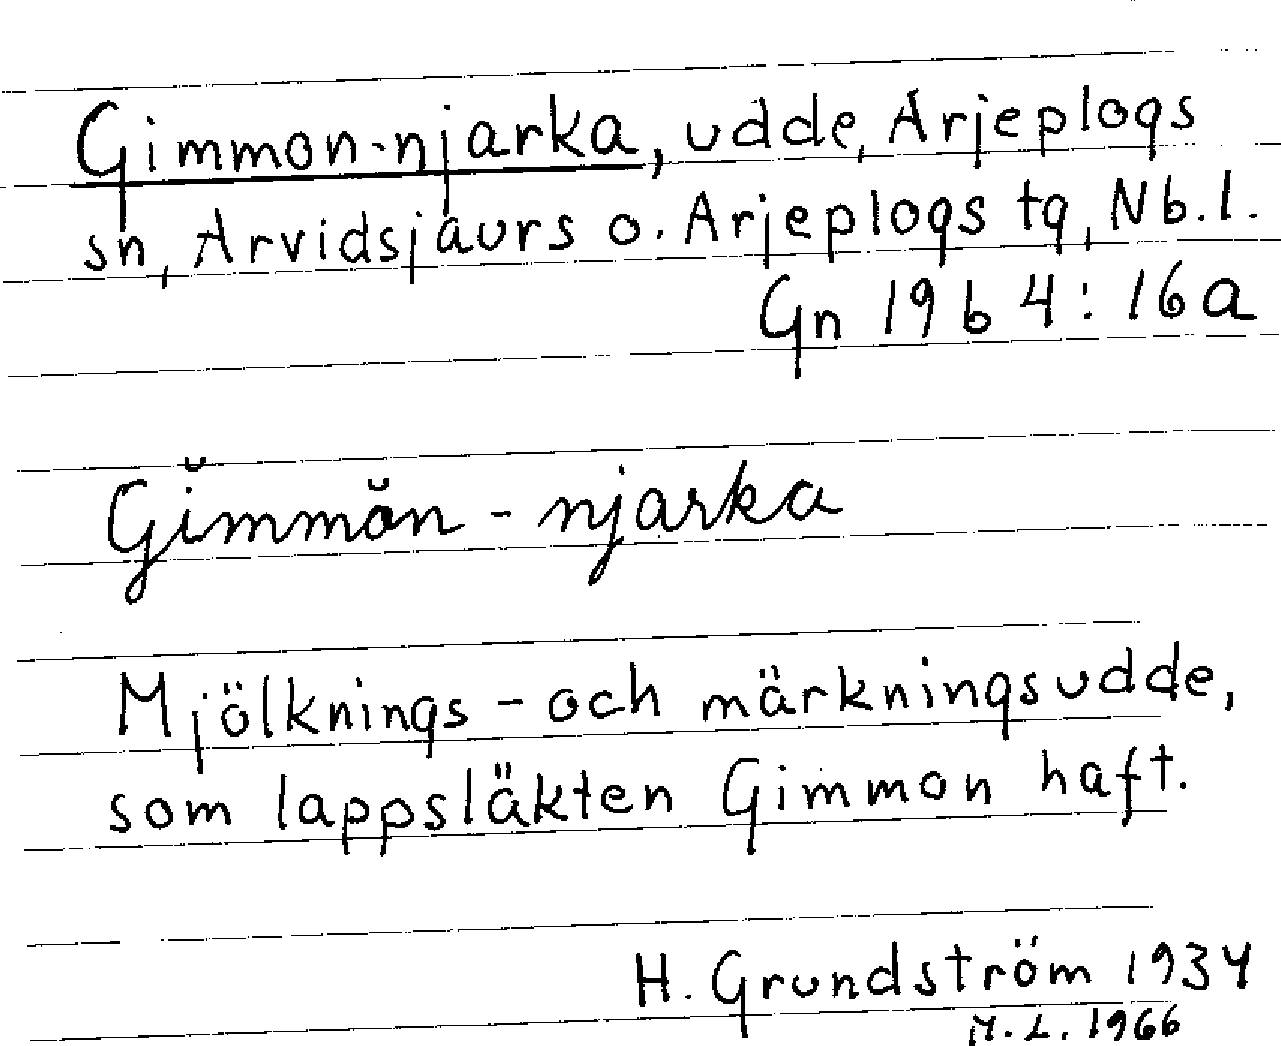 Gimmon-njarka, udde, Arjeplogs
sn, Arvidsjaurs o. Arjeplogs tg, Nb.l.
Gn 19 b 4 : 16 a
Gĭmmŏn - njarka
Mjölknings - och märkningsudde,
som lappsläkten Gimmon haft.
H. Grundström 1934
M. L. 1966